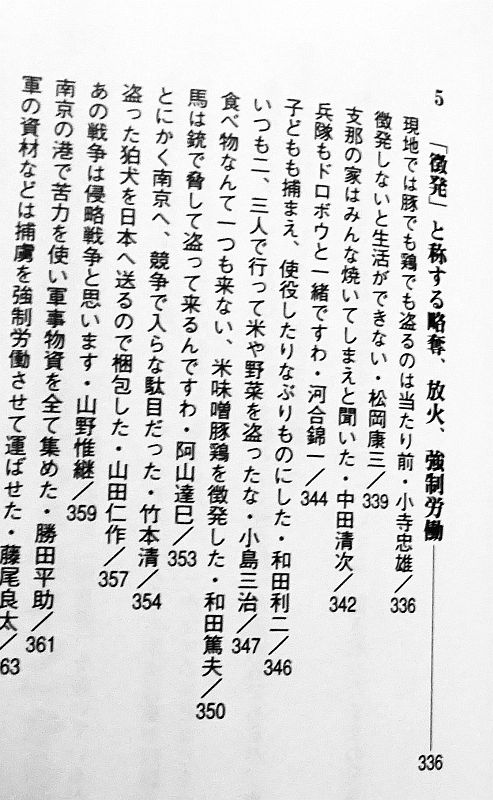 5 「徴発」と称する略奪、放火、強制労働――336
現地では豚でも鶏でも盗るのは当たり前・小寺忠雄／336
徴発しないと生活ができない・松岡康三／339
支那の家はみんな焼いてしまえと聞いた・中田清次／342
兵隊もドロボウと一緒ですわ・河合錦一／344
子どもも捕まえ、使役したりなぶりものにした・和田利二／346
いつも二、三人で行って米や野菜を盗ったな・小島三治／347
食べ物なんて一つも来ない、米味噌豚鶏を徴発した・和田篤夫／350
馬は銃で脅して盗って来るんですわ・阿山達巳／353
とにかく南京へ、競争で入らな駄目だった・竹本清／354
盗った狛犬を日本へ送るので梱包した・山田仁作／357
あの戦争は侵略戦争と思います・山野惟継／359
南京の港で苦力を使い軍事物資を全て集めた・勝田平助／361
軍の資材などは捕虜を強制労働させて運ばせた・藤尾良太／63